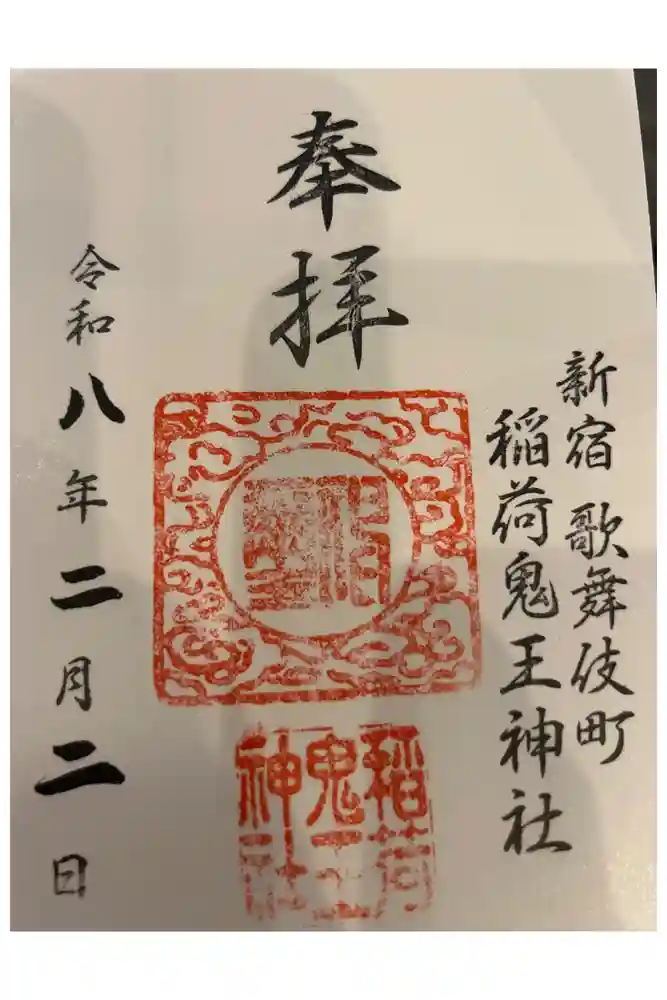 新宿 歌舞伎町
稲荷鬼王神社
奉拝
稲荷
鬼王
神社
令和八年二月二日